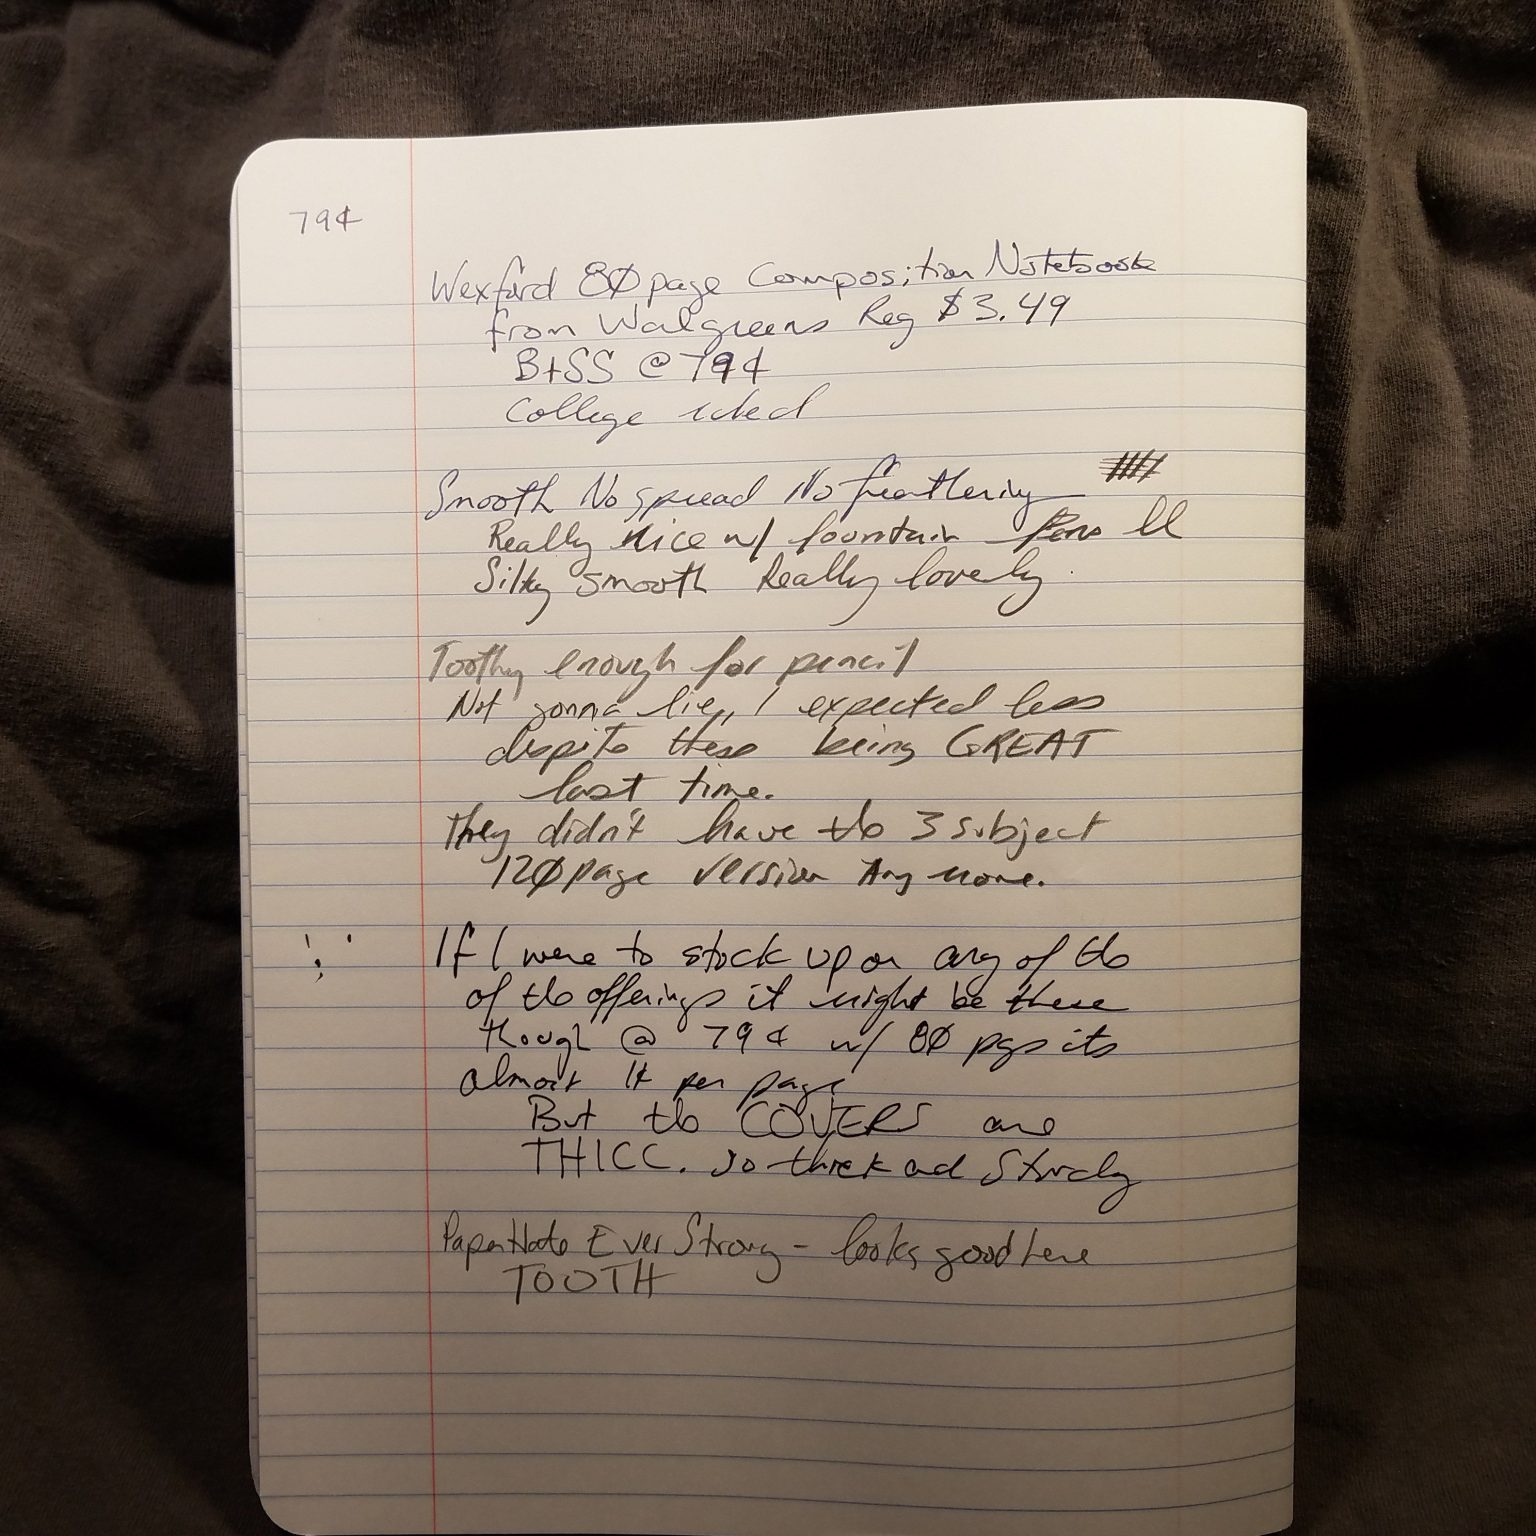 79¢
Wexford 80page Composition Notebook
from Walgreens Reg $3.49
BtSS @ 79¢
College ruled
Smooth No spread No feathering
Really nice w/ fountain Pens
Silky smooth Really lovely.
Toothy enough for pencil
Not gonna lie, I expected less
despite these being GREAT
last time.
They didn't have the 3 subject
120page version Any more.
If I were to stock up on any of the
of the offerings it might be these
though @ 79¢ w/ 80 pgs its
almost 1¢ per page
But the COVERS are
THICC. So thick and Sturdy
PaperMate EverStrong - looks good here
TOOTH